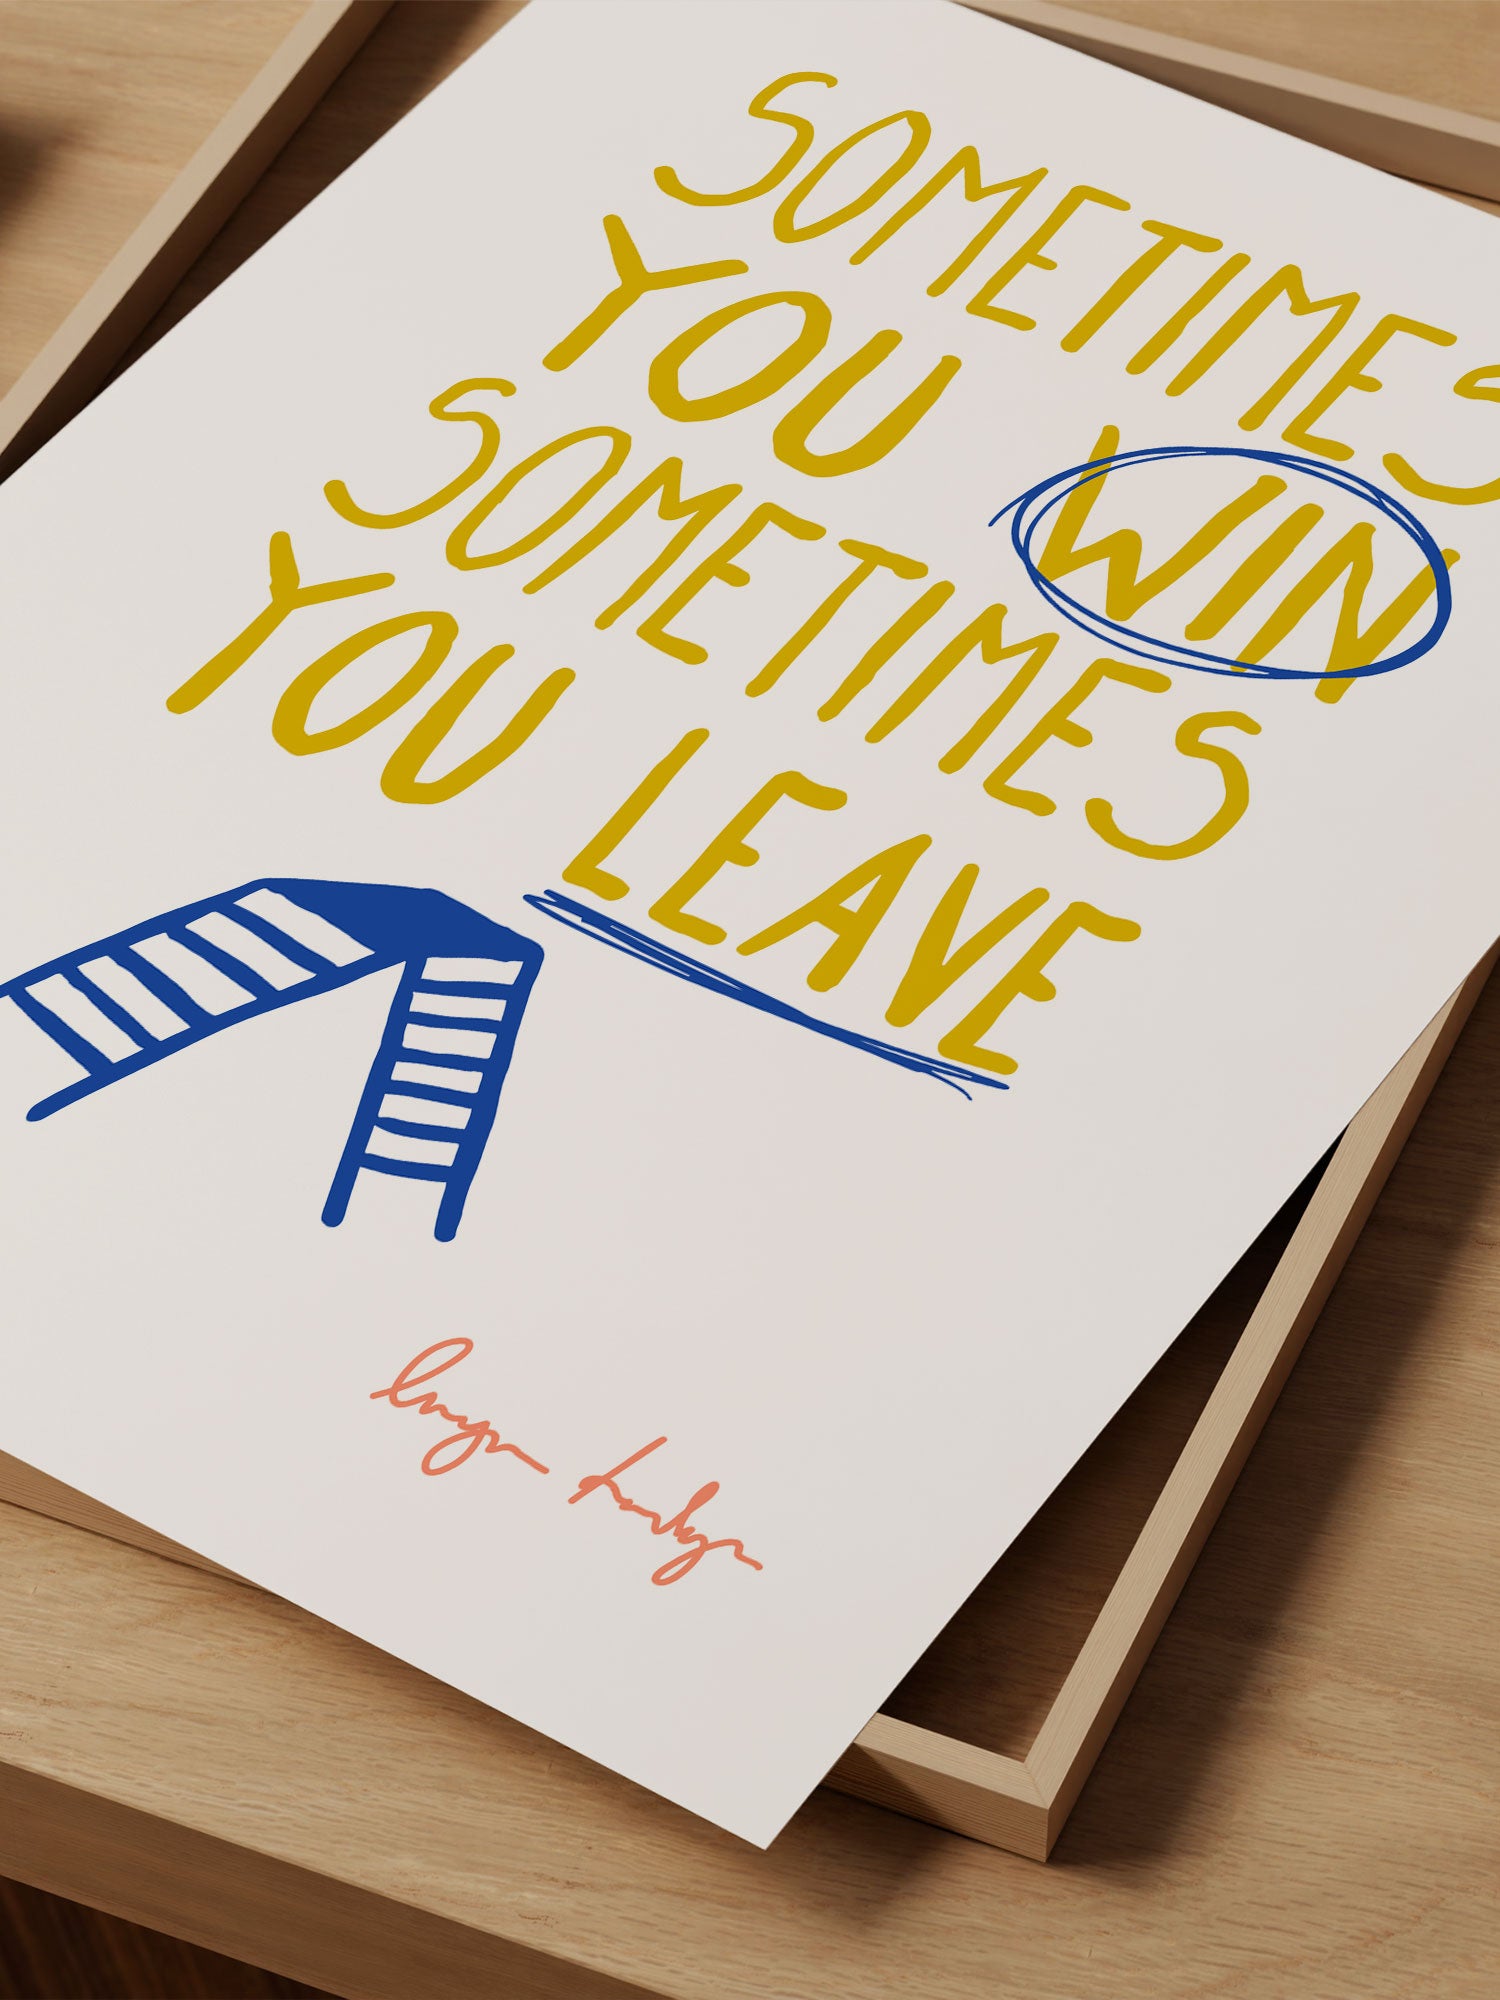 SOMETIMES
YOU WIN
SOMETIMES
YOU LEAVE